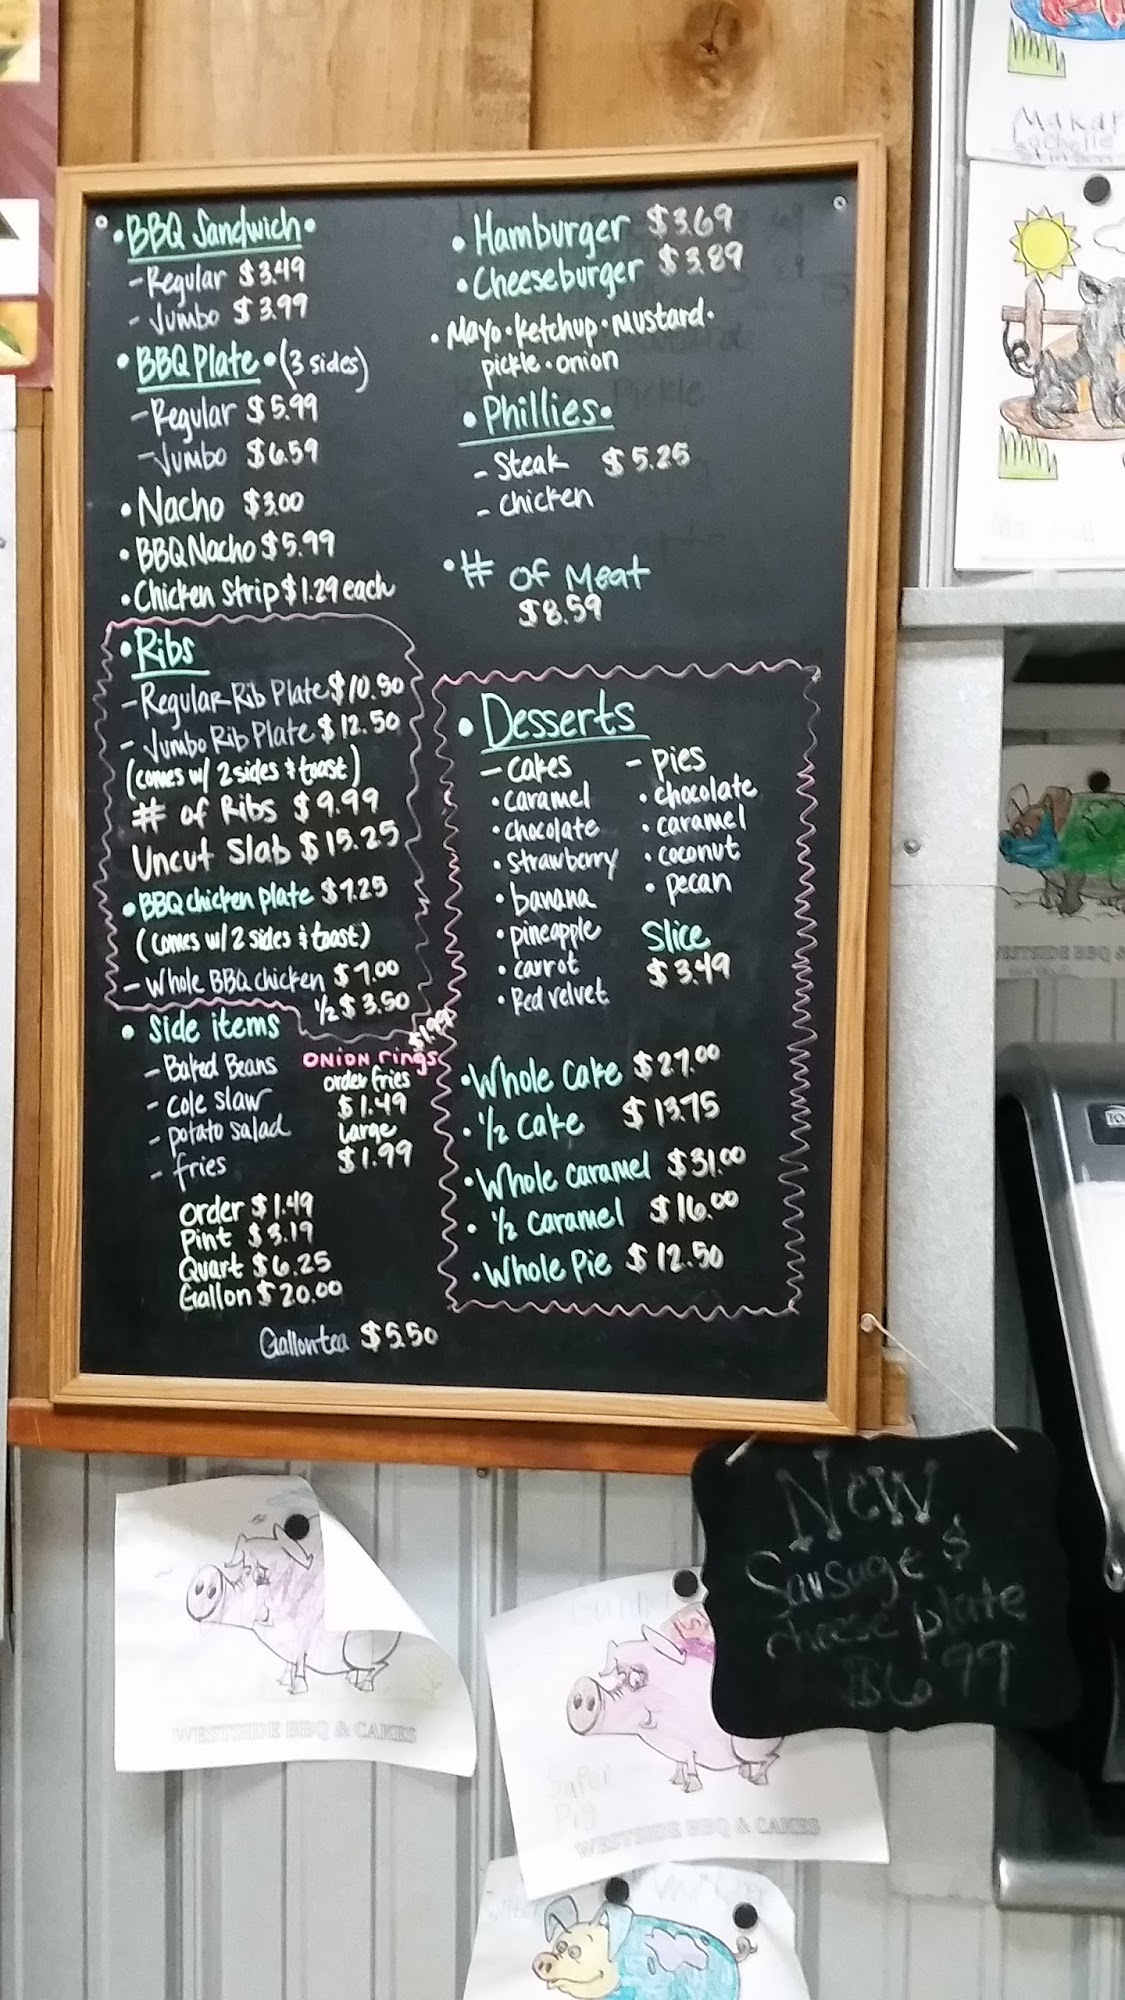 • BBQ Sandwich •
- Regular $3.49
- Jumbo $3.99
• BBQ Plate • (3 sides)
- Regular $5.99
- Jumbo $6.59
• Nacho $3.00
• BBQ Nacho $5.99
• Chicken Strip $1.29 each
• Ribs
- Regular Rib Plate $10.50
- Jumbo Rib Plate $12.50
(comes w/ 2 sides & toast)
# of Ribs $9.99
Uncut Slab $15.25
• BBQ chicken plate $7.25
(comes w/ 2 sides & toast)
- Whole BBQ chicken $7.00
1/2 $3.50
• Side items
- Baked Beans
- cole slaw
- potato salad
- fries
$1.99
ONION rings
order fries
$1.49
Large
$1.99
order $1.49
Pint $3.19
Quart $6.25
Gallon $20.00
Gallon tea $5.50
• Hamburger $3.69
• Cheeseburger $3.89
• Mayo • Ketchup • Mustard •
pickle • onion
• Phillies •
- Steak $5.25
- chicken
• # of Meat
$8.59
• Desserts
- cakes
• caramel
• chocolate
• Strawberry
• banana
• pineapple
• carrot
• Red velvet
- pies
• chocolate
• caramel
• coconut
• pecan
Slice
$3.49
• Whole Cake $27.00
• 1/2 cake $13.75
• Whole caramel $31.00
• 1/2 caramel $16.00
• Whole Pie $12.50
New
Sausage &
cheese plate
$6.99
WESTSIDE BBQ & CAKES
WESTSIDE BBQ & CAKES
WESTSIDE BBQ &